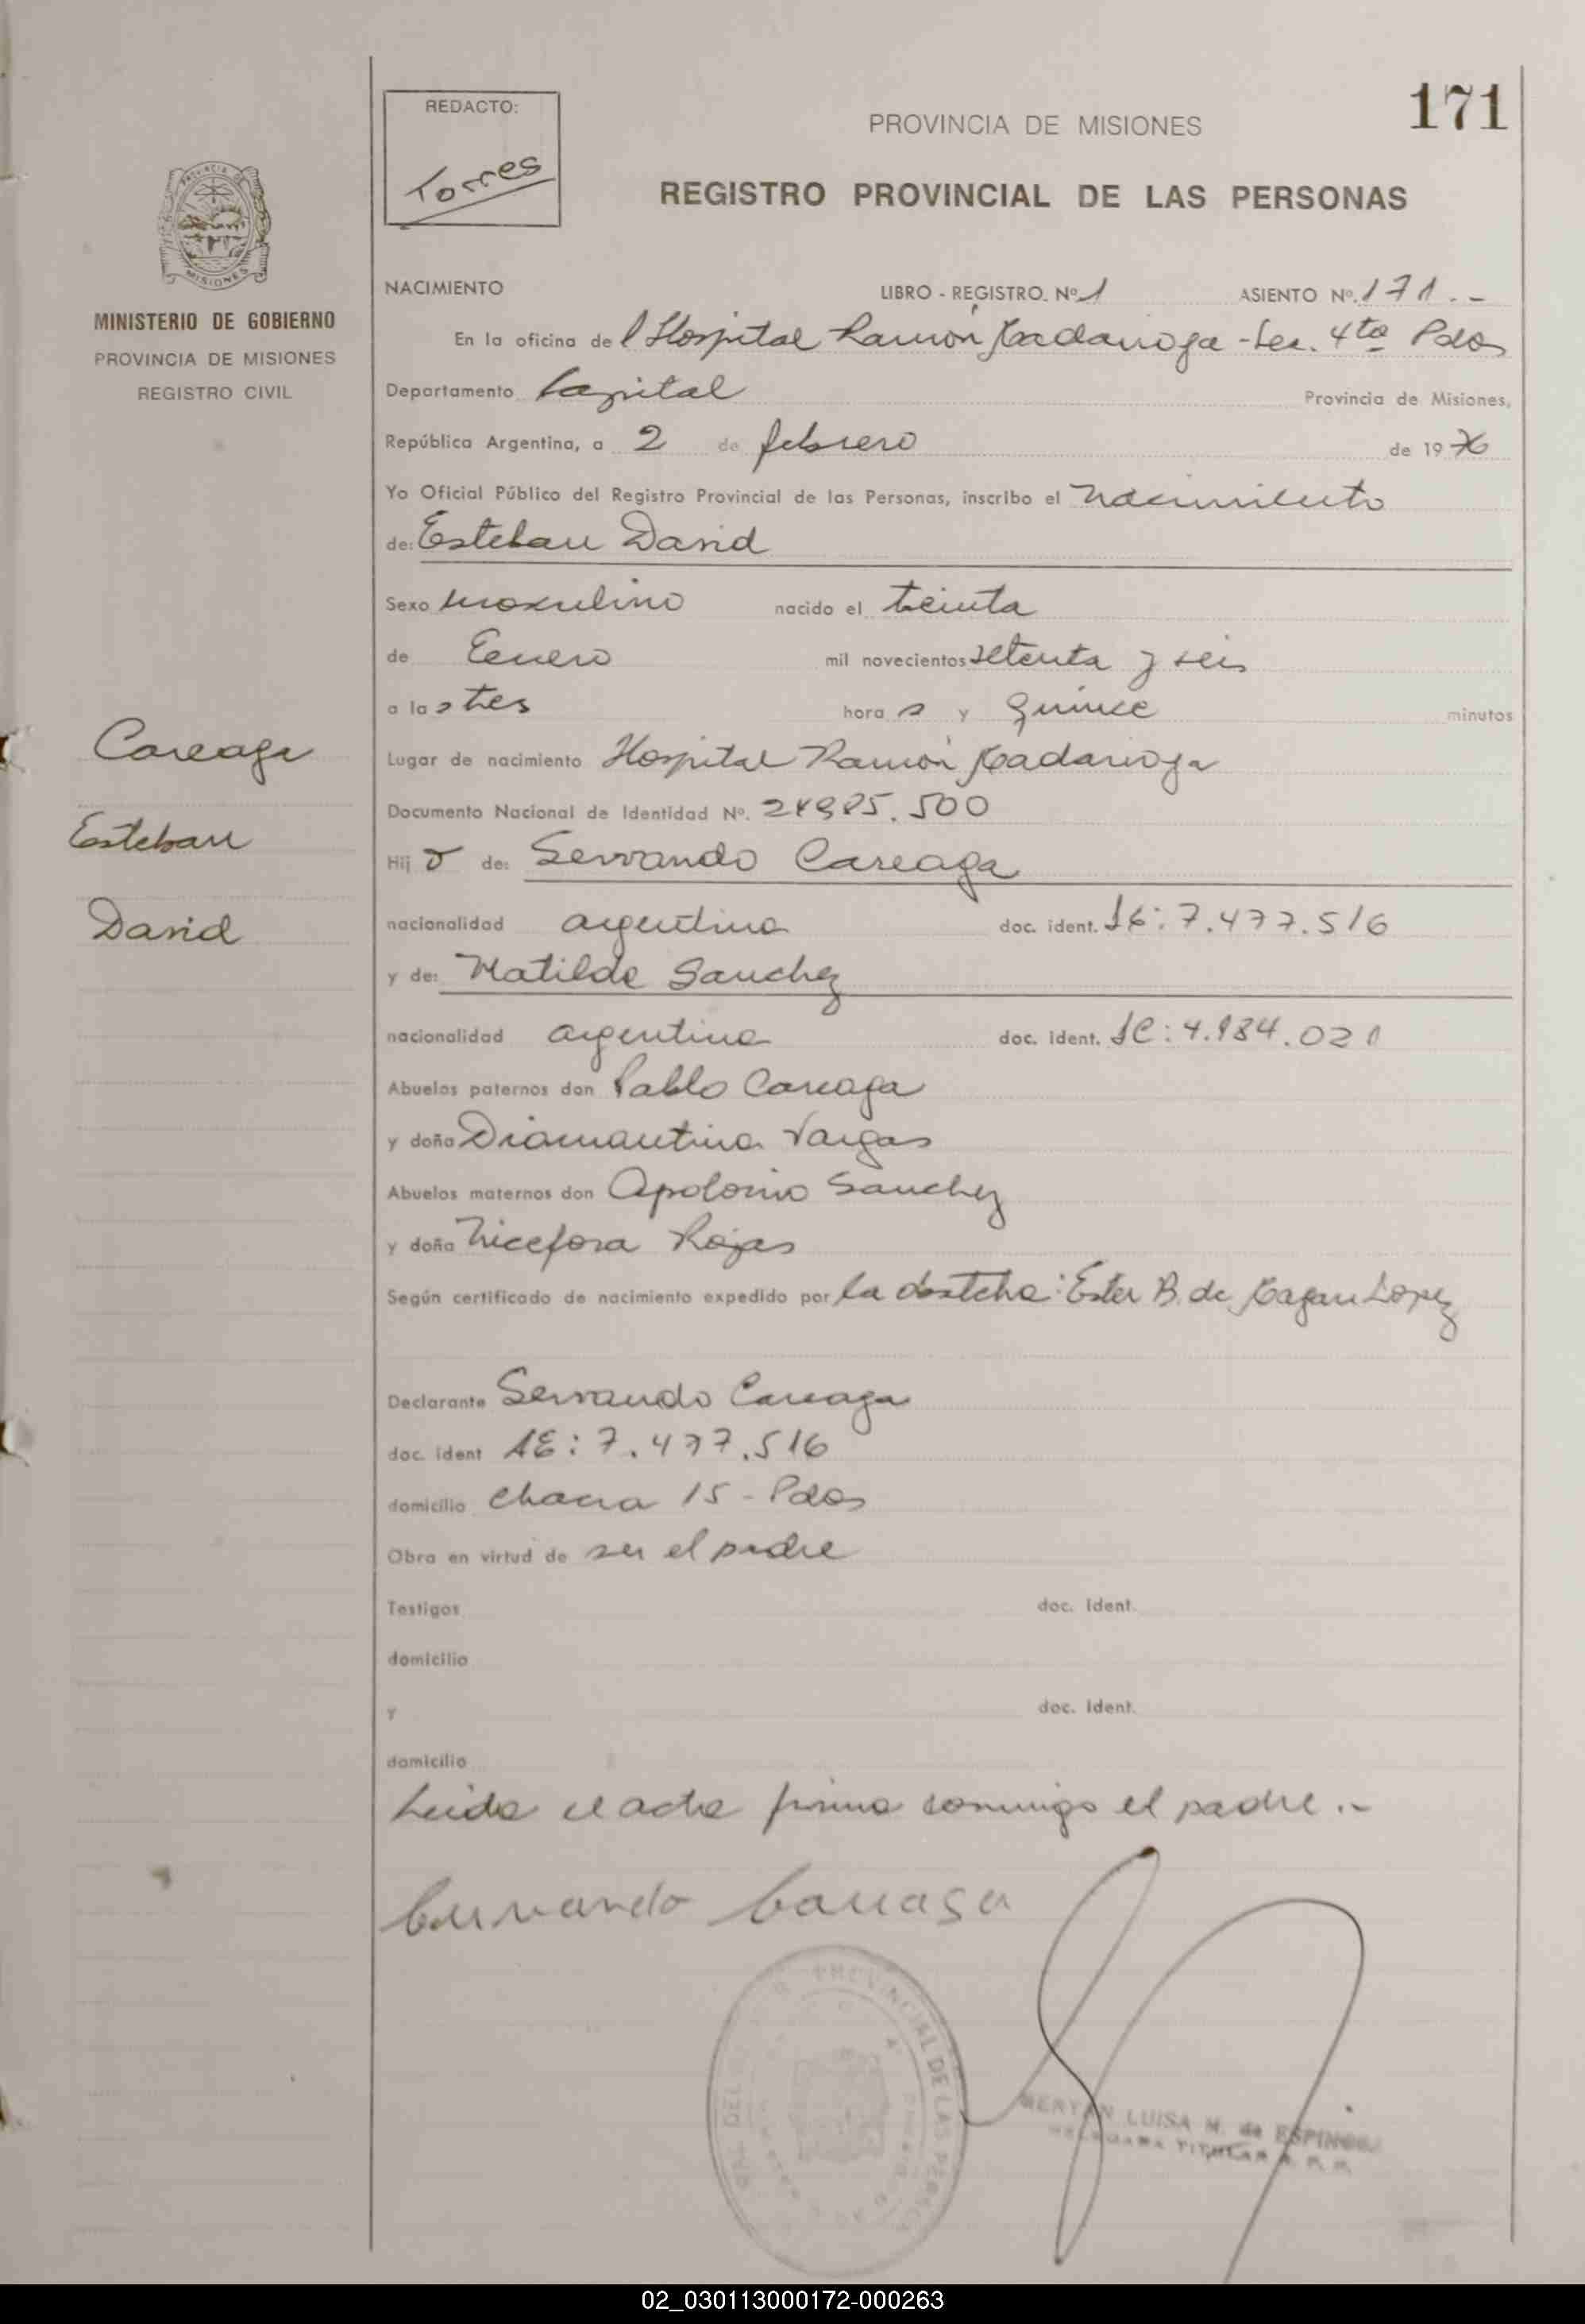 171
REDACTO:
Torres
PROVINCIA DE MISIONES
REGISTRO PROVINCIAL DE LAS PERSONAS
PROVINCIA DE
MISIONES
MINISTERIO DE GOBIERNO
PROVINCIA DE MISIONES
REGISTRO CIVIL
NACIMIENTO LIBRO - REGISTRO. Nº 1 ASIENTO Nº. 171.-
En la oficina del Hospital Ramón Madariaga - Sec. 4ta Pdas
Departamento Capital Provincia de Misiones,
República Argentina, a 2 de febrero de 1976
Yo Oficial Público del Registro Provincial de las Personas, inscribo el nacimiento
de: Esteban David
Sexo masculino nacido el treinta
de Enero mil novecientos setenta y seis
a las tres horas y quince minutos
Lugar de nacimiento Hospital Ramón Madariaga
Documento Nacional de Identidad Nº. 24.985.500
Hijo de: Servando Careaga
nacionalidad argentina doc. ident. LE: 7.477.516
y de: Matilde Sanchez
nacionalidad argentina doc. ident. LC: 4.984.021
Abuelos paternos don Pablo Careaga
y doña Diamantina Vargas
Abuelos maternos don Apolonio Sanchez
y doña Nicefora Rojas
Según certificado de nacimiento expedido por la obstetra: Ester B. de Lopez
Declarante Servando Careaga
doc. ident LE: 7.477.516
domicilio chacra 15 - Pdas
Obra en virtud de ser el padre
Testigos doc. ident.
domicilio
y doc. ident.
domicilio
Leida el acta firma conmigo el padre.-
Servando Careaga
Careaga
Esteban
David
PROVINCIAL DE LAS PERSONAS
LUISA M. de ESPINOSA
TITULAR
02_030113000172-000263